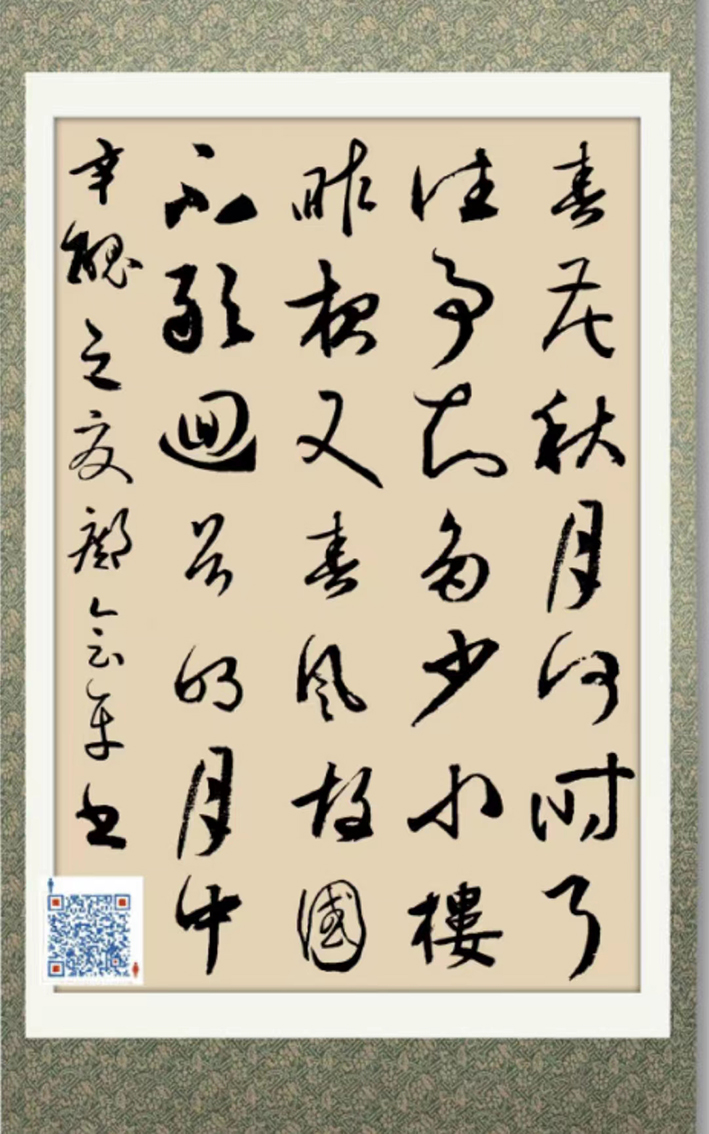 春花秋月何时了
往事知多少小樓
昨夜又春风故國
不堪回首明月中
辛醜之夏鄺会军书